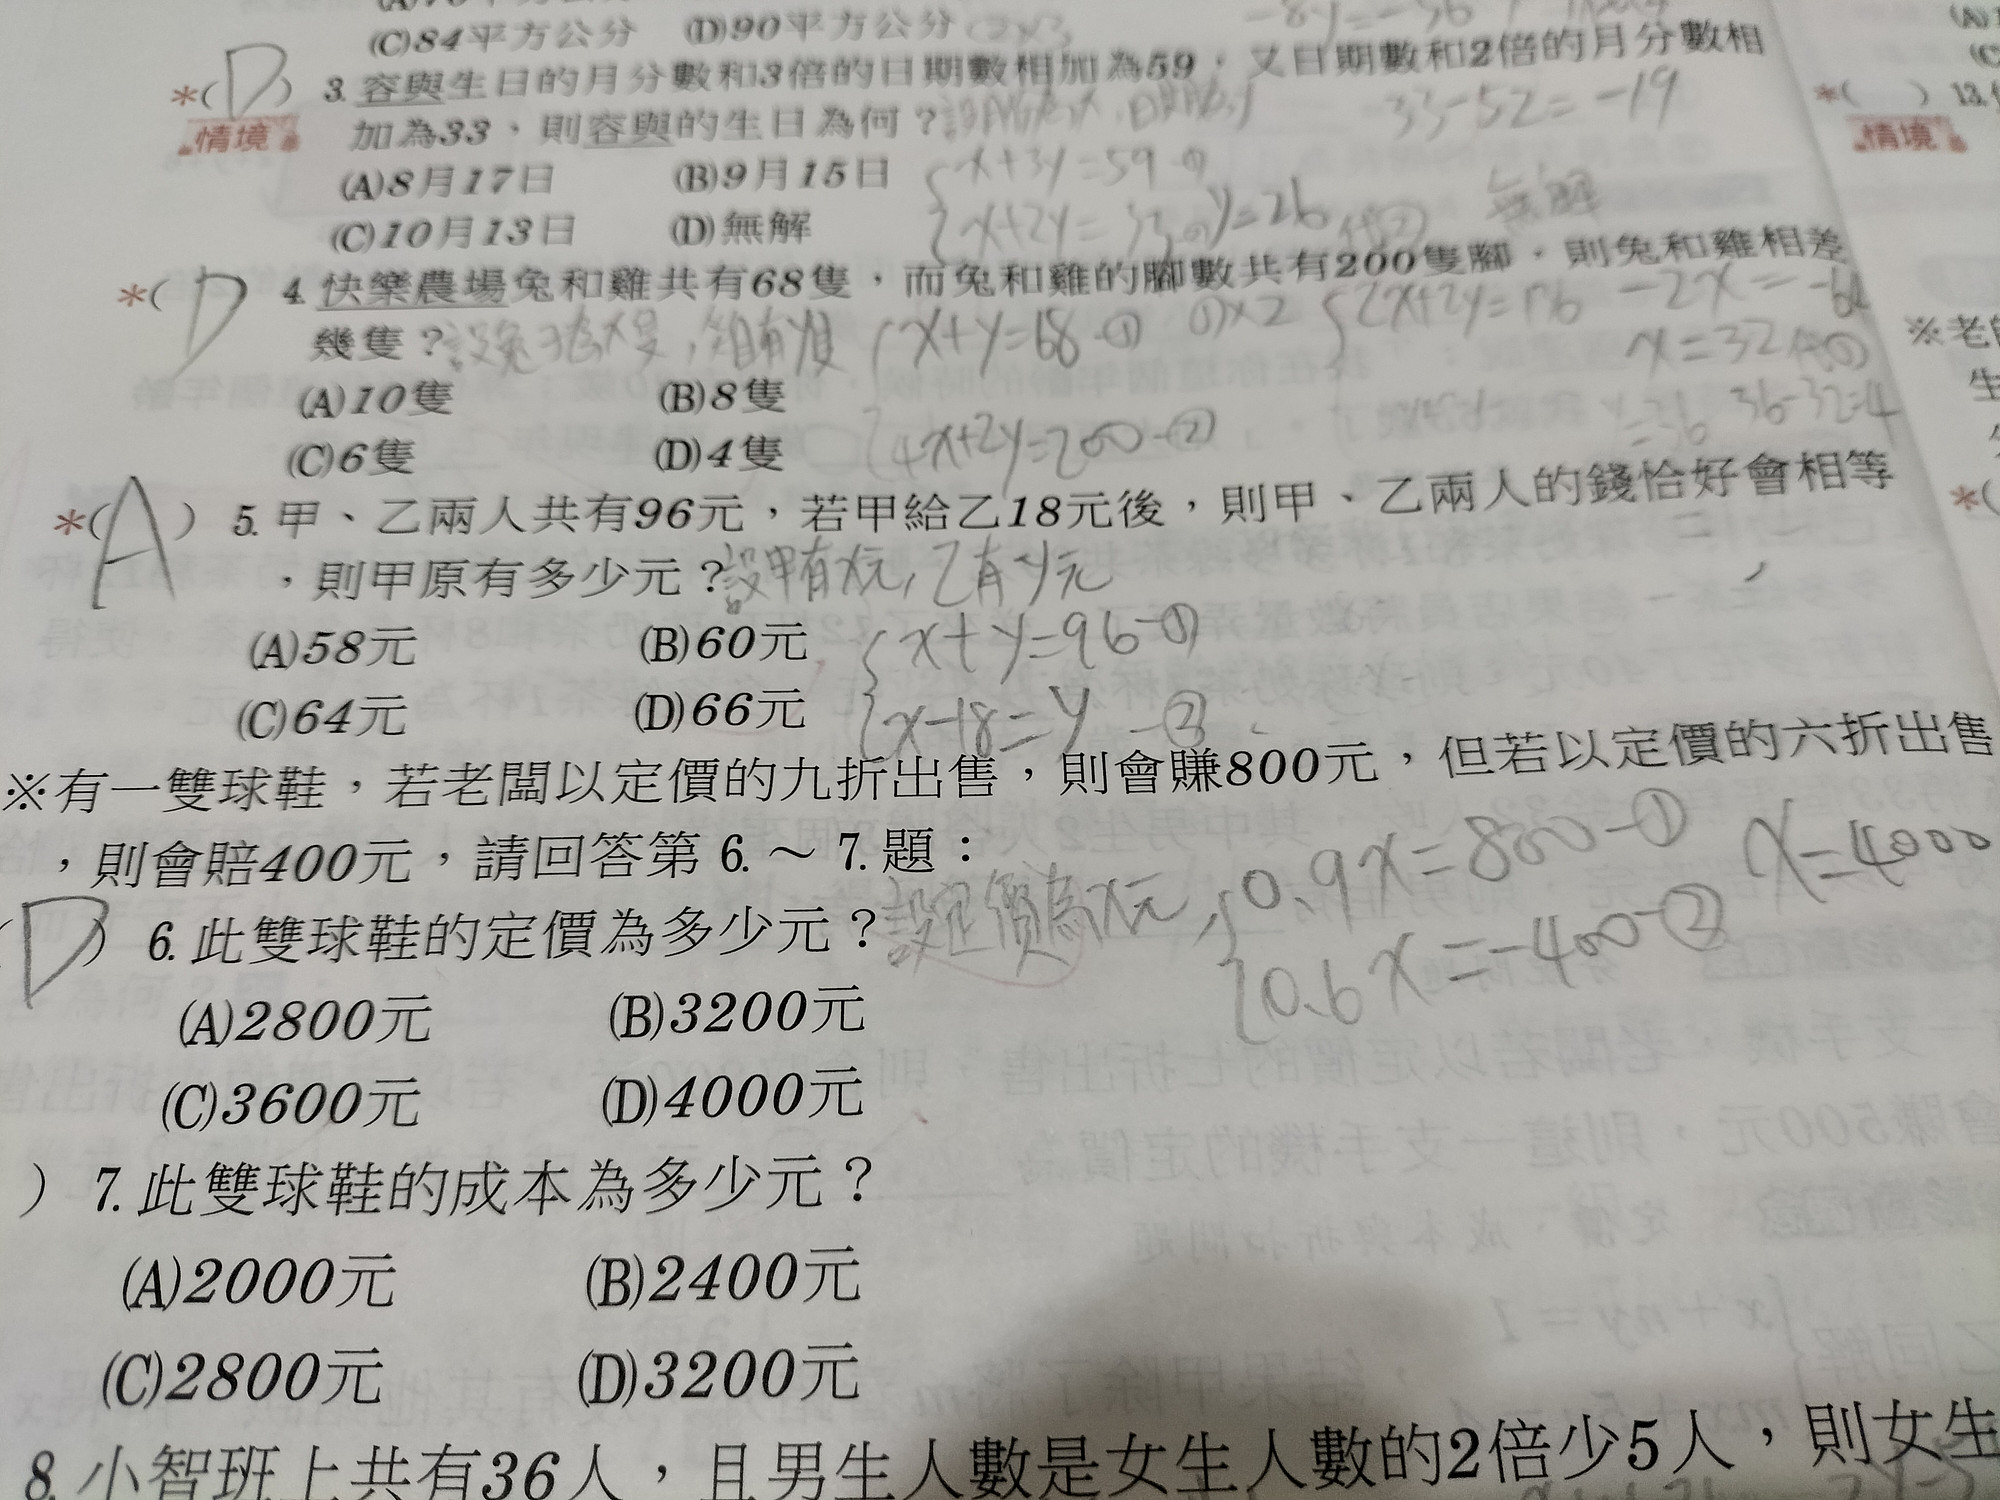 (C)84平方公分 (D)90平方公分
*(D) 3. 容與生日的月分數和3倍的日期數相加為59，又日期數和2倍的月分數相
情境 加為33，則容與的生日為何？
33-52=-19
(A)8月17日 (B)9月15日
x+3y=59-①
(C)10月13日 (D)無解
x+2y=33-② y=26 代② 無解
*(D) 4. 快樂農場兔和雞共有68隻，而兔和雞的腳數共有200隻腳，則兔和雞相差
幾隻？
x+y=68-① ①×2 2x+2y=136 -2x=-64
x=32代①
(A)10隻 (B)8隻
4x+2y=200-② y=36 36-32=4
(C)6隻 (D)4隻
*(A) 5. 甲、乙兩人共有96元，若甲給乙18元後，則甲、乙兩人的錢恰好會相等
，則甲原有多少元？設甲有x元，乙有y元
(A)58元 (B)60元 x+y=96-①
(C)64元 (D)66元 x-18=y-②
※有一雙球鞋，若老闆以定價的九折出售，則會賺800元，但若以定價的六折出售
，則會賠400元，請回答第 6. ～ 7. 題：
0.9x=800-① x=4000
(D) 6. 此雙球鞋的定價為多少元？設定價為x元，
0.6x=-400-②
(A)2800元 (B)3200元
(C)3600元 (D)4000元
) 7. 此雙球鞋的成本為多少元？
(A)2000元 (B)2400元
(C)2800元 (D)3200元
8. 小智班上共有36人，且男生人數是女生人數的2倍少5人，則女生
*( ) 13.
情境
※老
生
*(